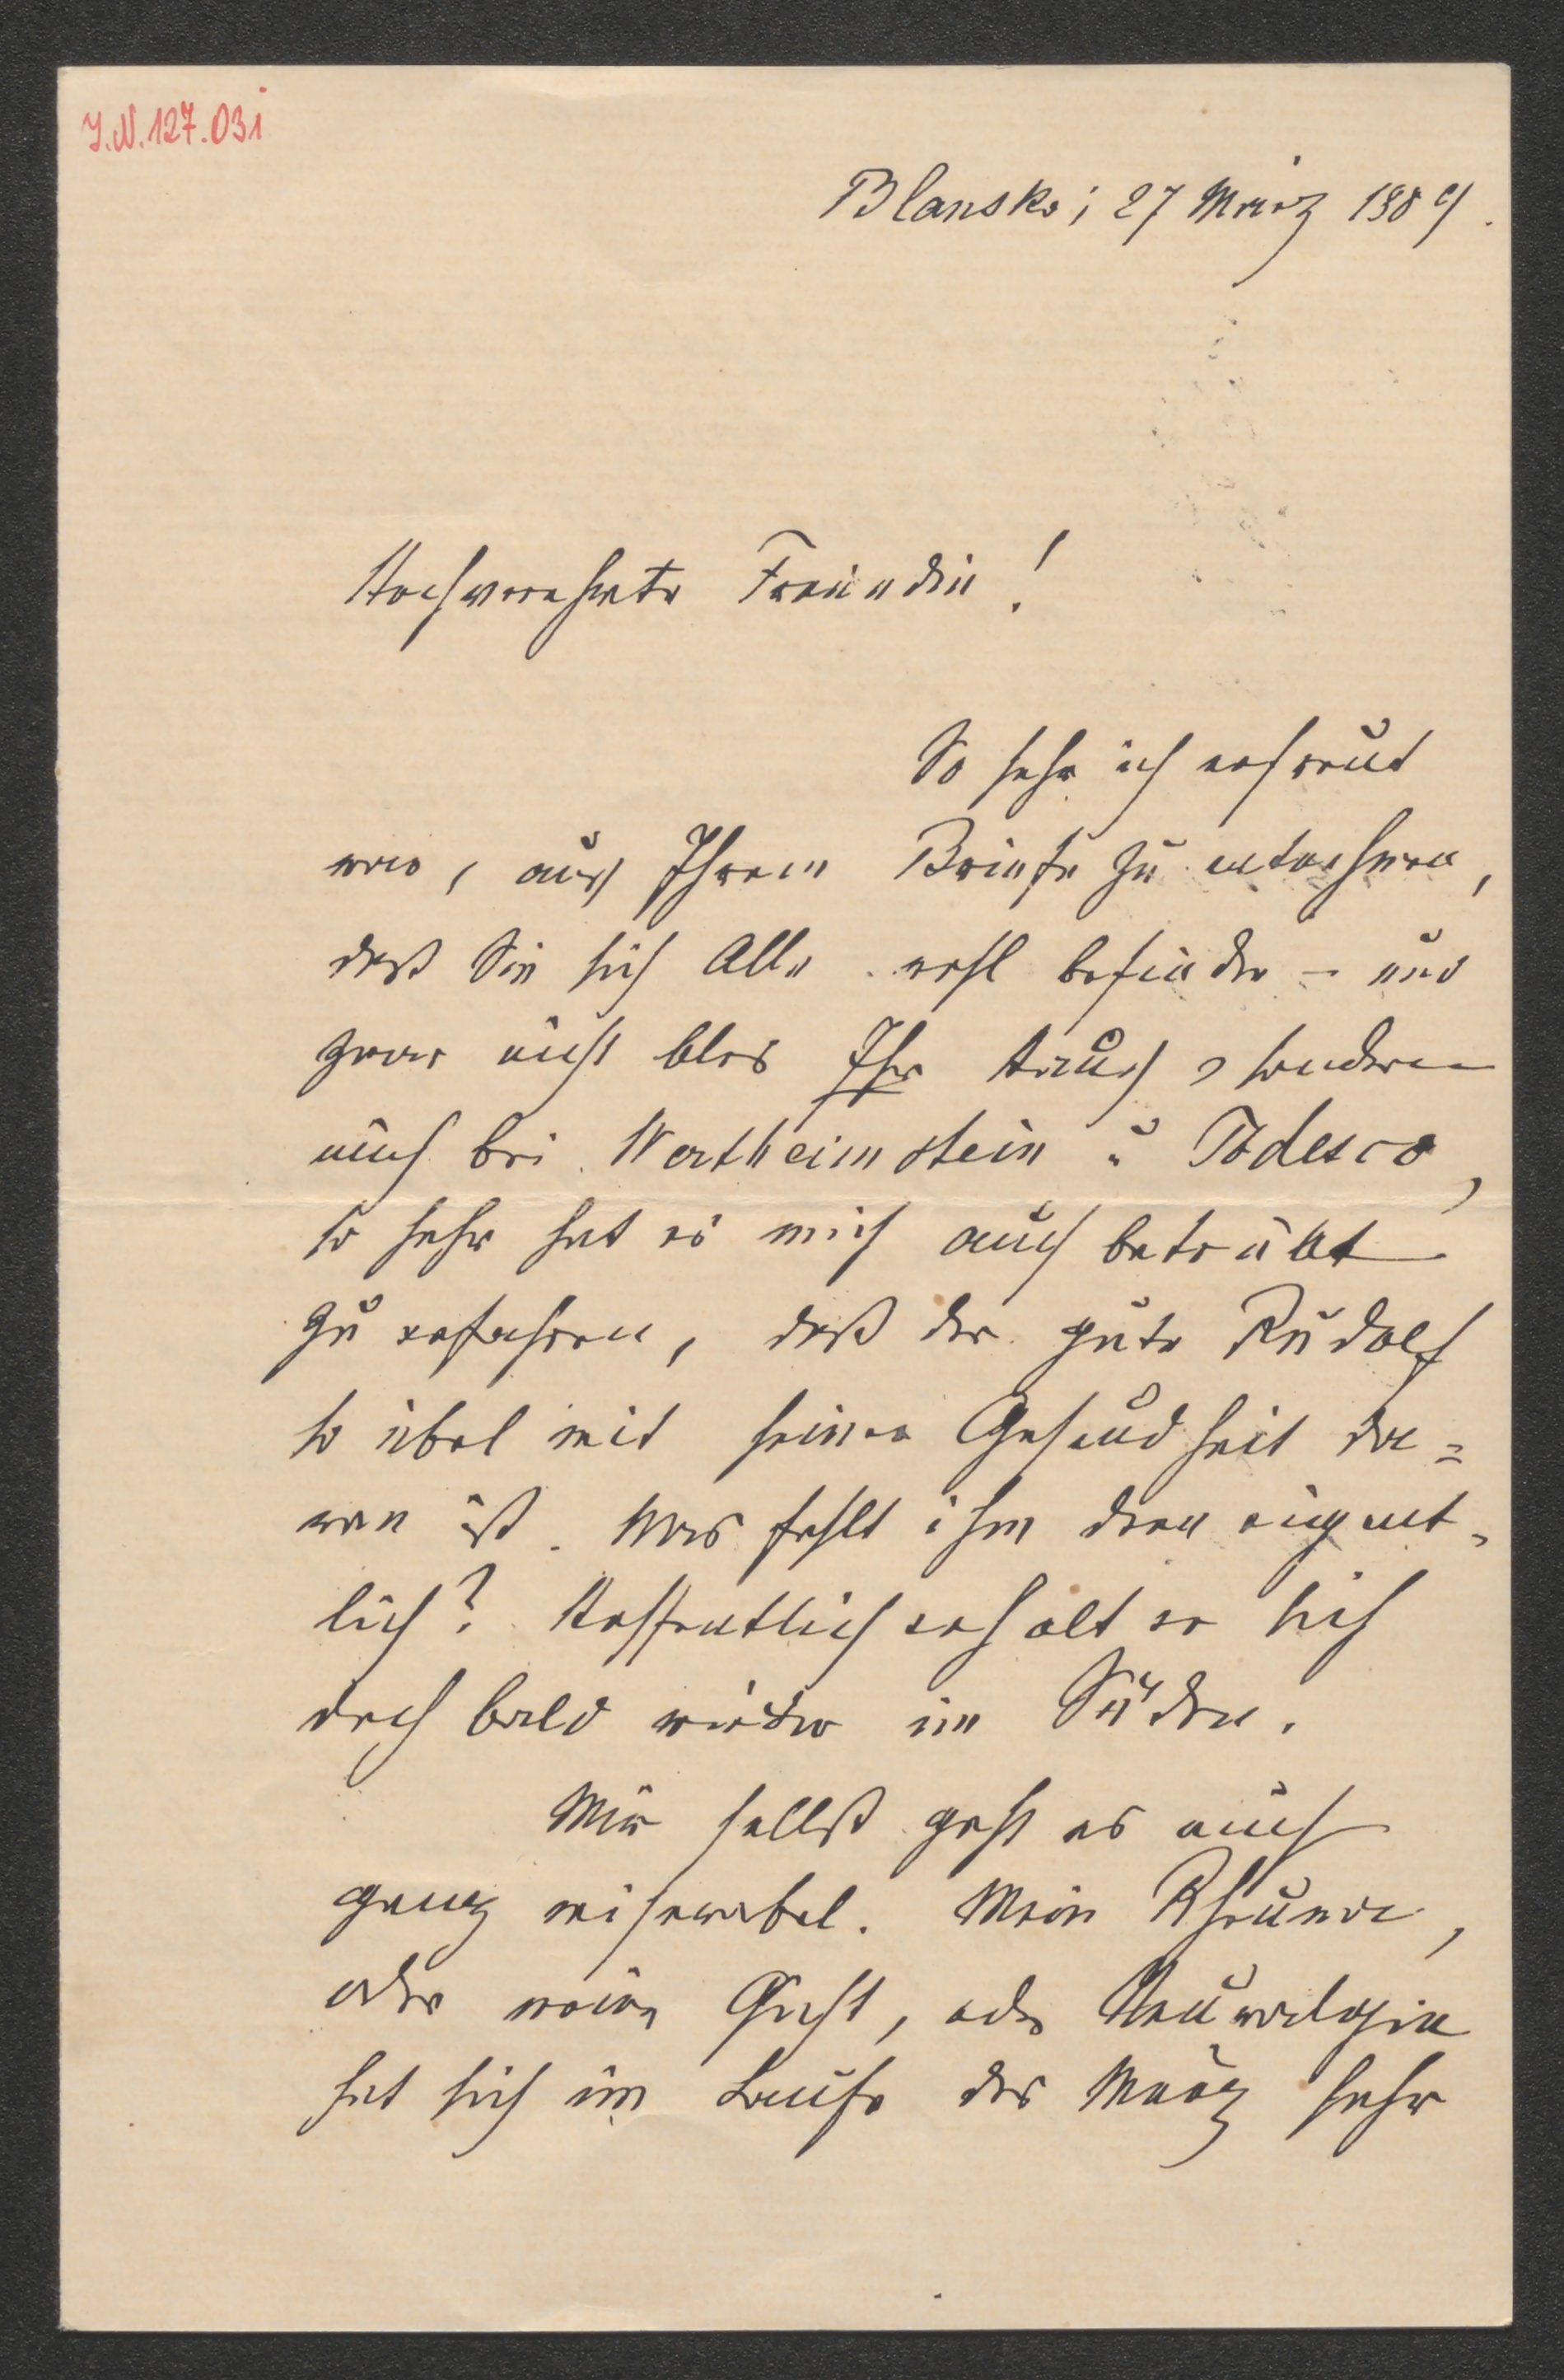 I.N. 127.031
Blansko; 27 März 1889.
Hochverehrte Freundin!
So sehr ich erfreut
war, aus Ihrem Briefe zu entnehmen,
daß Sie sich Alle wohl befinden – und
zwar nicht blos Ihr Haus, sondern
auch bei Wertheimstein u Todesco,
so sehr hat es mich auch betrübt
zu erfahren, daß der gute Rudolf
so übel mit seiner Gesundheit da=
ran ist. Was fehlt ihm denn eigent=
lich? Hoffentlich erholt er sich
doch bald wieder im Süden.
Mir selbst geht es auch
ganz miserabel. Mein Rheuma,
oder meine Gicht, oder Neuralgie
hat sich im Laufe des März sehr